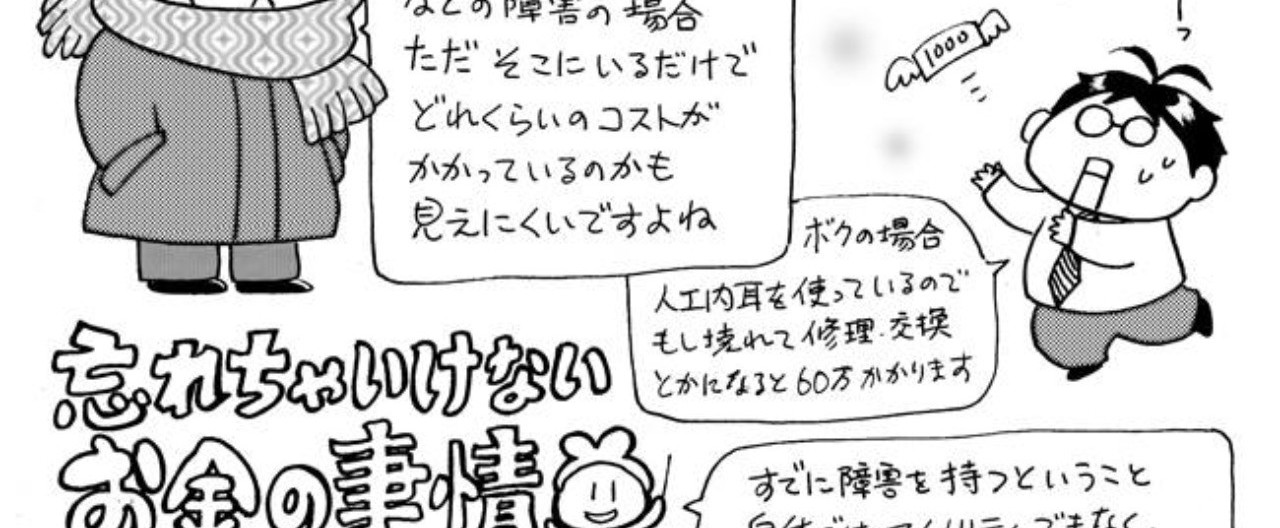 などの障害の場合
ただ そこにいるだけで
どれくらいのコストが
かかっているのかも
見えにくいですよね
1000
ボクの場合
人工内耳を使っているので
もし壊れて修理・交換
とかになると60万かかります
忘れちゃいけない
お金の事情
すでに障害を持つということ